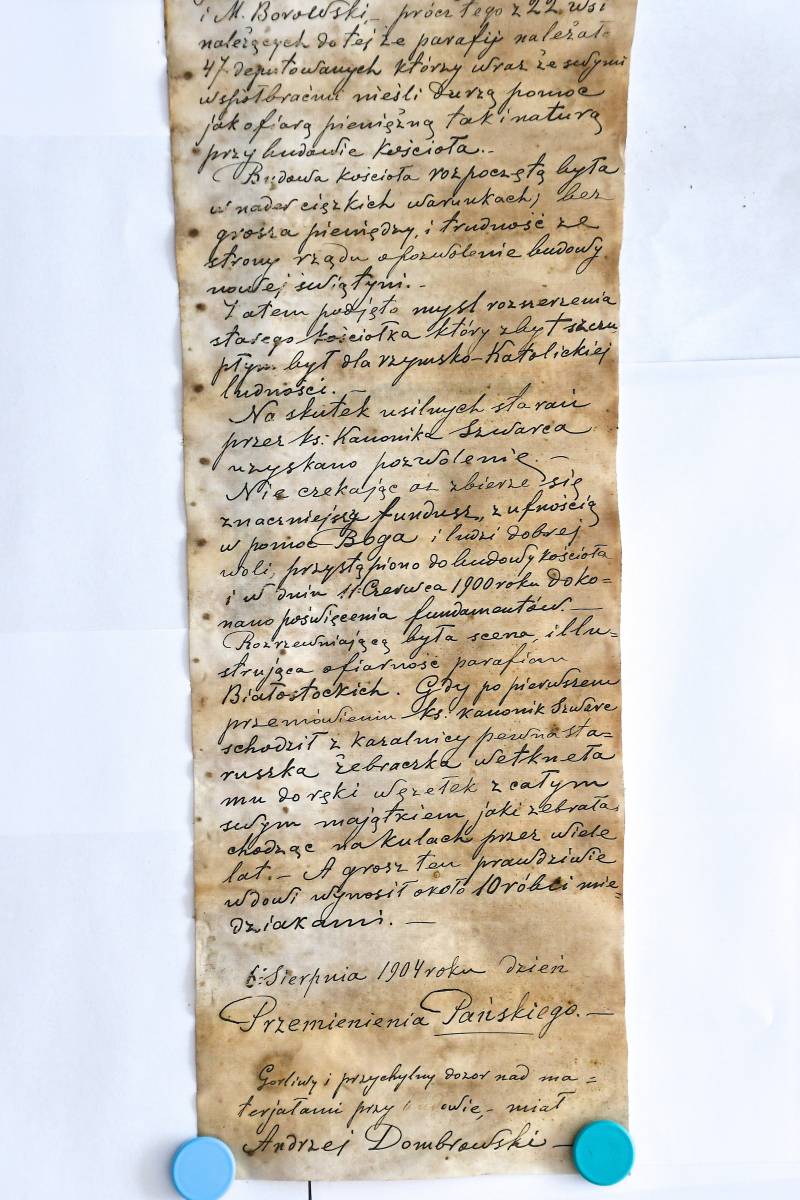 i M. Borowski, – prócz tego z 22 wsi
należących do tej że parafij należało
47 deputowanych którzy wraz ze swymi
współbraćmi nieśli Dużą pomoc
jak ofiarą pieniężną tak i naturą
przy budowie Kościoła. –
Budowa kościoła rozpoczętą była
w nader ciężkich warunkach, bez
grosza pieniędzy, i trudność ze
strony rządu o pozwolenie budowy
nowej świątyni. –
Zatem podjęto myśl rozszerzenia
starego kościołka który zbyt szczu
płym był dla rzymsko-Katolickiej
ludności. –
Na skutek usilnych starań
przez ks: Kanonika Szwarca
uzyskano pozwolenie. –
Nie czekając aż zbierze się
znaczniejszy fundusz, z ufnością
w pomoc Boga i ludzi dobrej
woli, przystąpiono do budowy kościoła
i w dniu 11 Czerwca 1900 roku doko=
nano poświęcenia fundamentów. –
Rozrzewniającą była scena, illu=
strująca ofiarność parafian
Białostockich. Gdy po pierwszem
przemówieniu ks: kanonik Szwarc
schodził z kazalnicy pewna sta=
ruszka żebraczka wetknęła
mu do ręki węzełek z całym
swym majątkiem, jaki zebrała
chodząc na kulach przez wiele
lat. – A grosz ten prawdziwie
wdowi wynosił około 10 róbli mie=
dziakami. –
6: Sierpnia 1904 roku dzień
Przemienienia Pańskiego. –
Gorliwy i przychylny dozor nad ma=
terjałami przy miał
Andrzej Dombrowski –